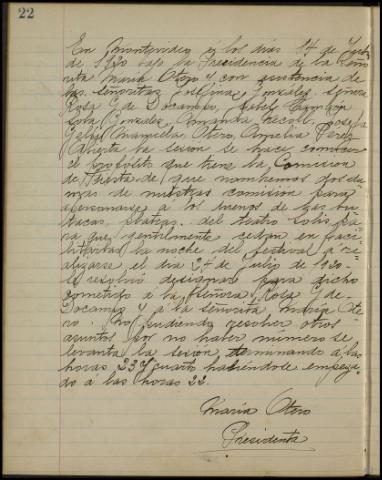 22
En Montevideo á los días 14 de Julio
de 1930 bajo la Presidencia de la Seño
rita Maria Otero y con asistencia de
las señoritas Josefina Gonzalez, Señora
Rosa G de Docampo, Isabel
Lola Gonzalez, Amanda
Manuela Otero, Amelia Perez
Abierta la sesión se hace conocer
el propósito que tiene la Comision
de Fiesta de que nombremos dos da
mas de nuestra comisión para
apersonarse a los dueños de las bu
tacas, plateas, del teatro Solis pa
ra que gentilmente cedan en
la noche del festival á re
alizarse el día 24 de Julio de 1930-
Se resolvió designar para dicho
cometido a la Señora Rosa G de
Docampo y á la señorita Maria Ote
ro. No pudiendo resolver otros
asuntos por no haber numero se
levanta la sesión terminando á las
horas 23 y cuarto habiéndose empeza
do á las horas 22.
Maria Otero
Presidenta